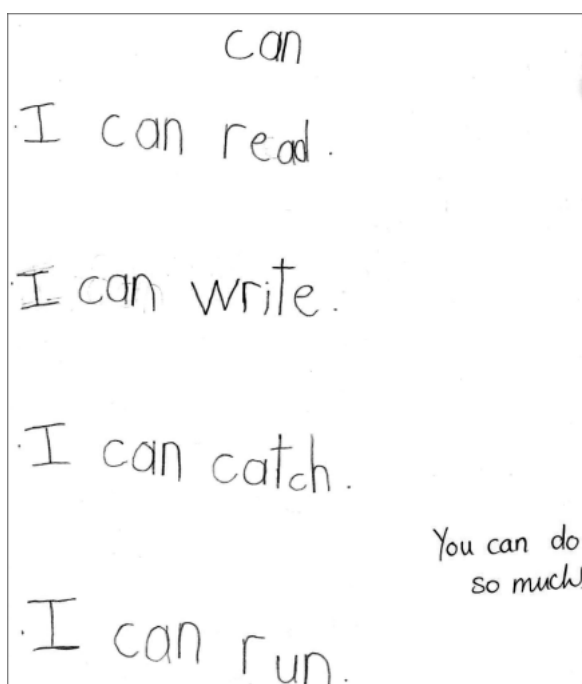 can
I can read.
I can write.
I can catch.
You can do
so much!
I can run.